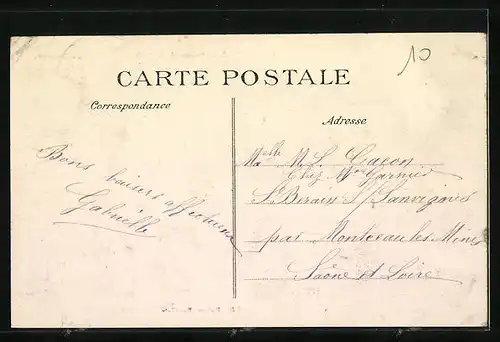 10
CARTE POSTALE
Correspondance
Adresse
Bons baisers affectueux
Gabrielle
Melle M. L. Gacon
Chez Mme Garnier
St Berain s/ Sanvignes
par Montceau les Mines
Saône et Loire